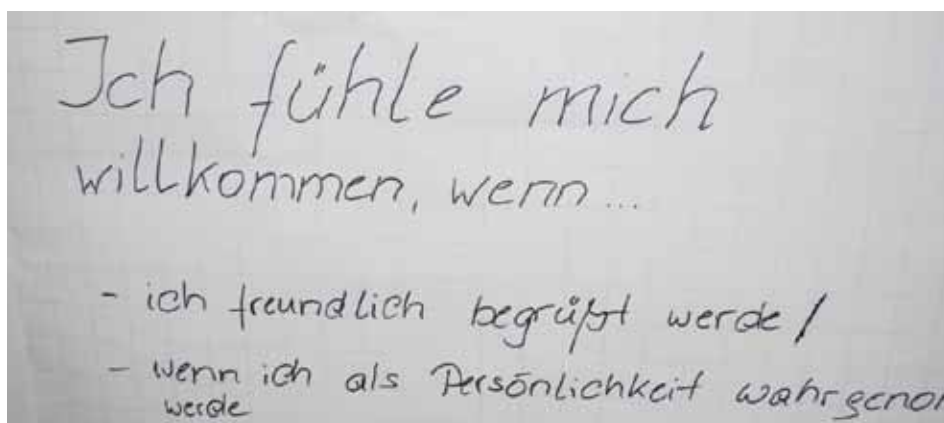 Ich fühle mich
willkommen, wenn...
- ich freundlich begrüßt werde /
- wenn ich als Persönlichkeit
werde